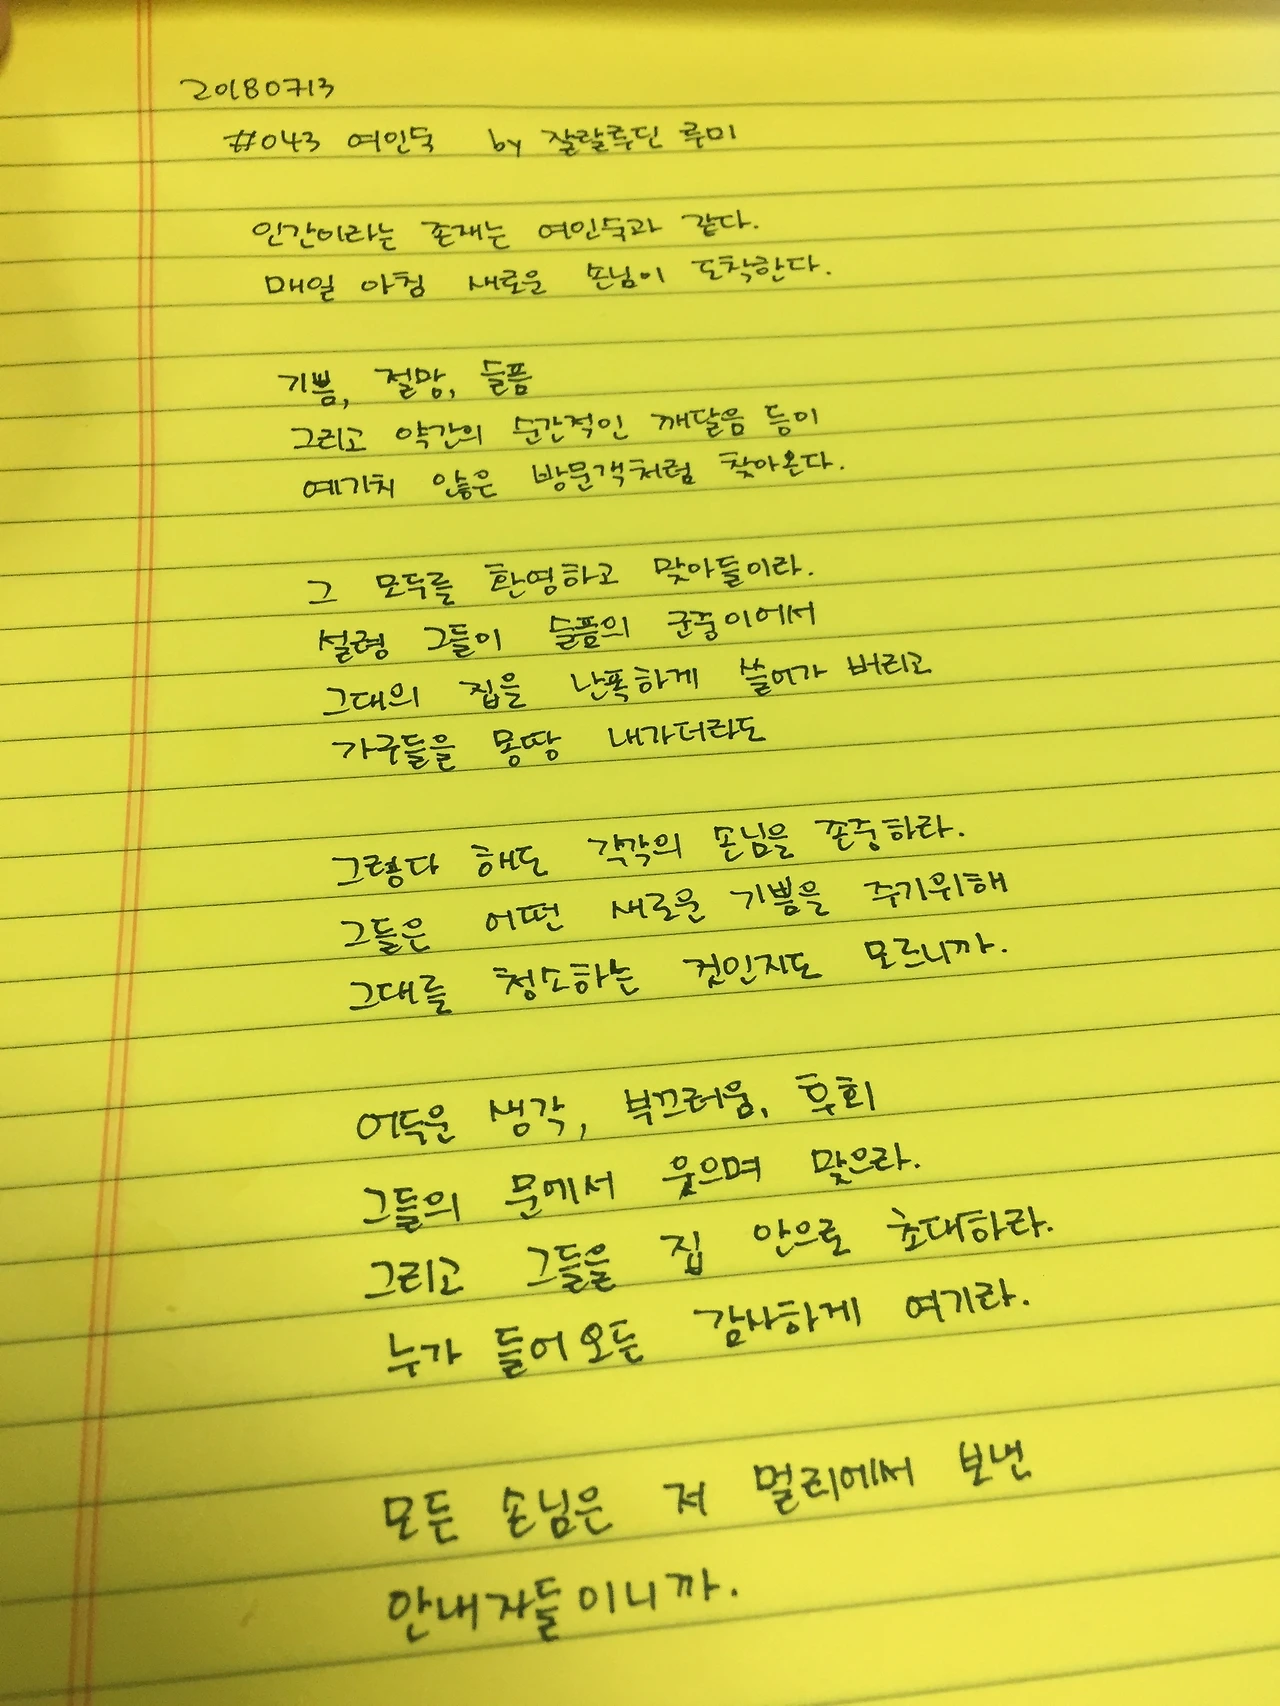 20180713
#043 여인숙 by 잘랄루딘 루미
인간이라는 존재는 여인숙과 같다.
매일 아침 새로운 손님이 도착한다.
기쁨, 절망, 슬픔
그리고 약간의 순간적인 깨달음 등이
예기치 않은 방문객처럼 찾아온다.
그 모두를 환영하고 맞아들이라.
설령 그들이 슬픔의 군중이어서
그대의 집을 난폭하게 쓸어가 버리고
가구들을 몽땅 내가더라도
그렇다 해도 각각의 손님을 존중하라.
그들은 어떤 새로운 기쁨을 주기위해
그대를 청소하는 것인지도 모르니까.
어두운 생각, 부끄러움, 후회
그들의 문에서 웃으며 맞으라.
그리고 그들을 집 안으로 초대하라.
누가 들어오든 감사하게 여기라.
모든 손님은 저 멀리에서 보낸
안내자들이니까.